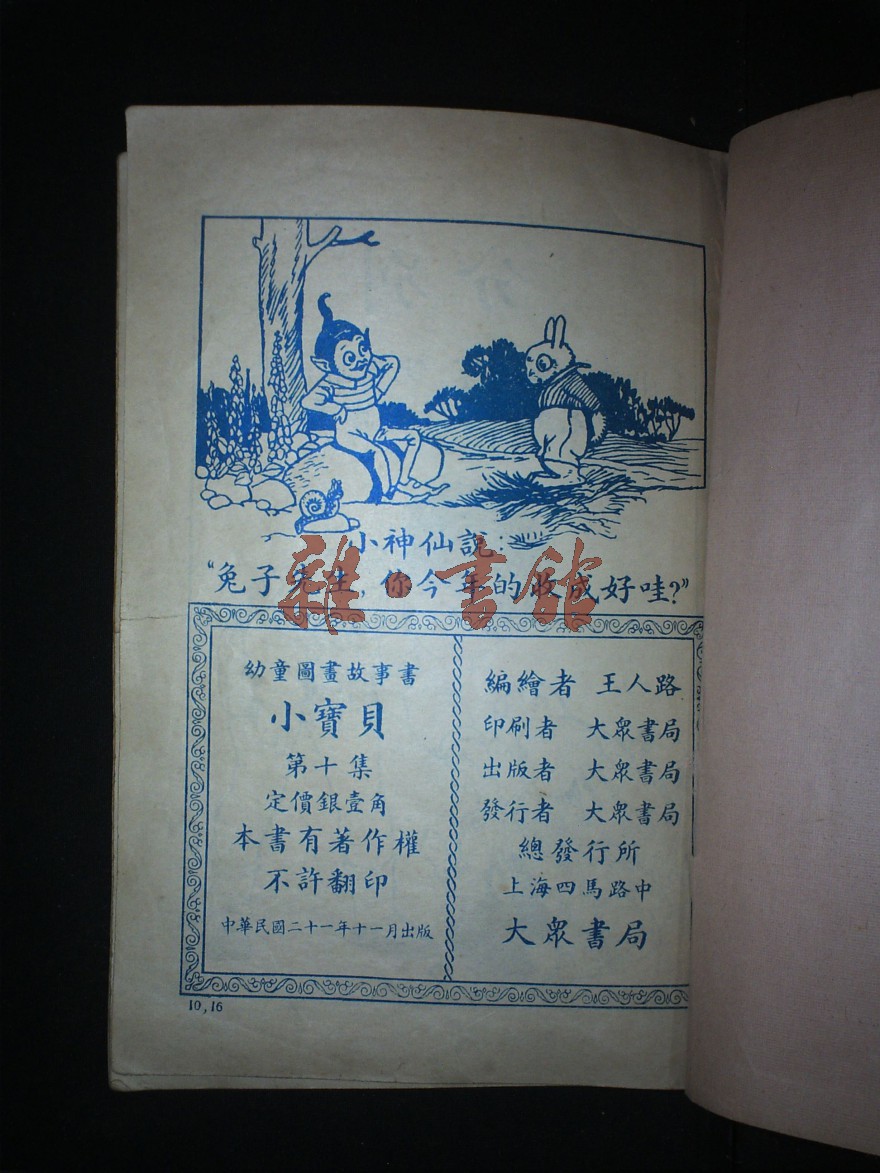 小神仙說：
“兔子先生，你今年的收成好哇？”
雜·書館
幼童圖畫故事書
小寶貝
第十集
定價銀壹角
本書有著作權
不許翻印
中華民國二十一年十一月出版
編繪者 王人路
印刷者 大眾書局
出版者 大眾書局
發行者 大眾書局
總發行所
上海四馬路中
大眾書局
10,16